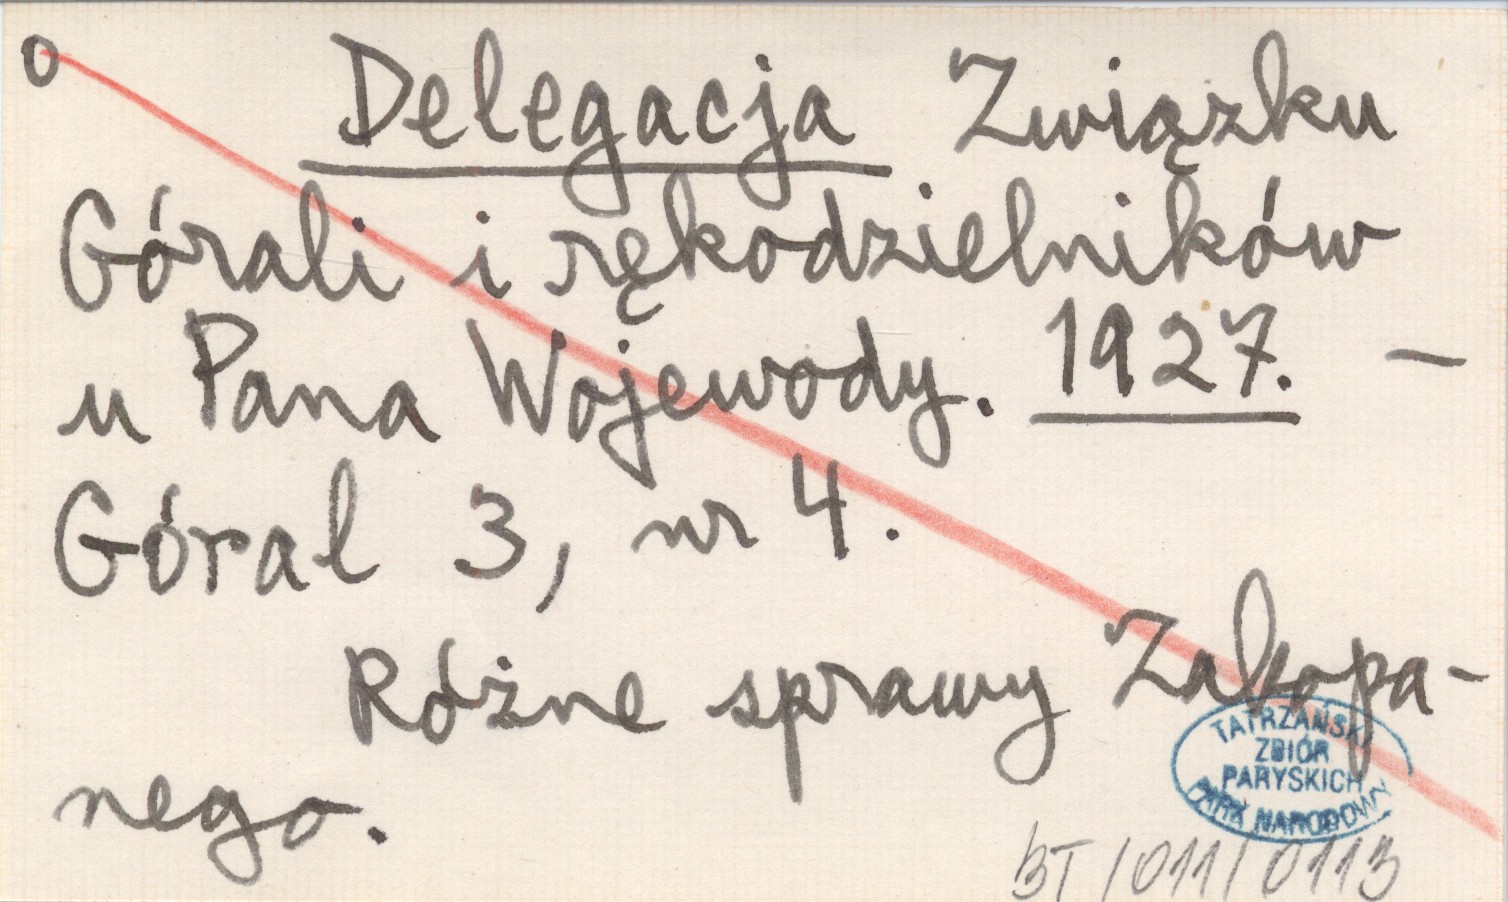 o Delegacja Związku
Górali i rękodzielników
u Pana Wojewody. 1927. —
Góral 3, nr 4.
Różne sprawy Zakopa-
nego.
TATRZAŃSKI
ZBIÓR
PARYSKICH
PARK NARODOWY
BT/011/0113